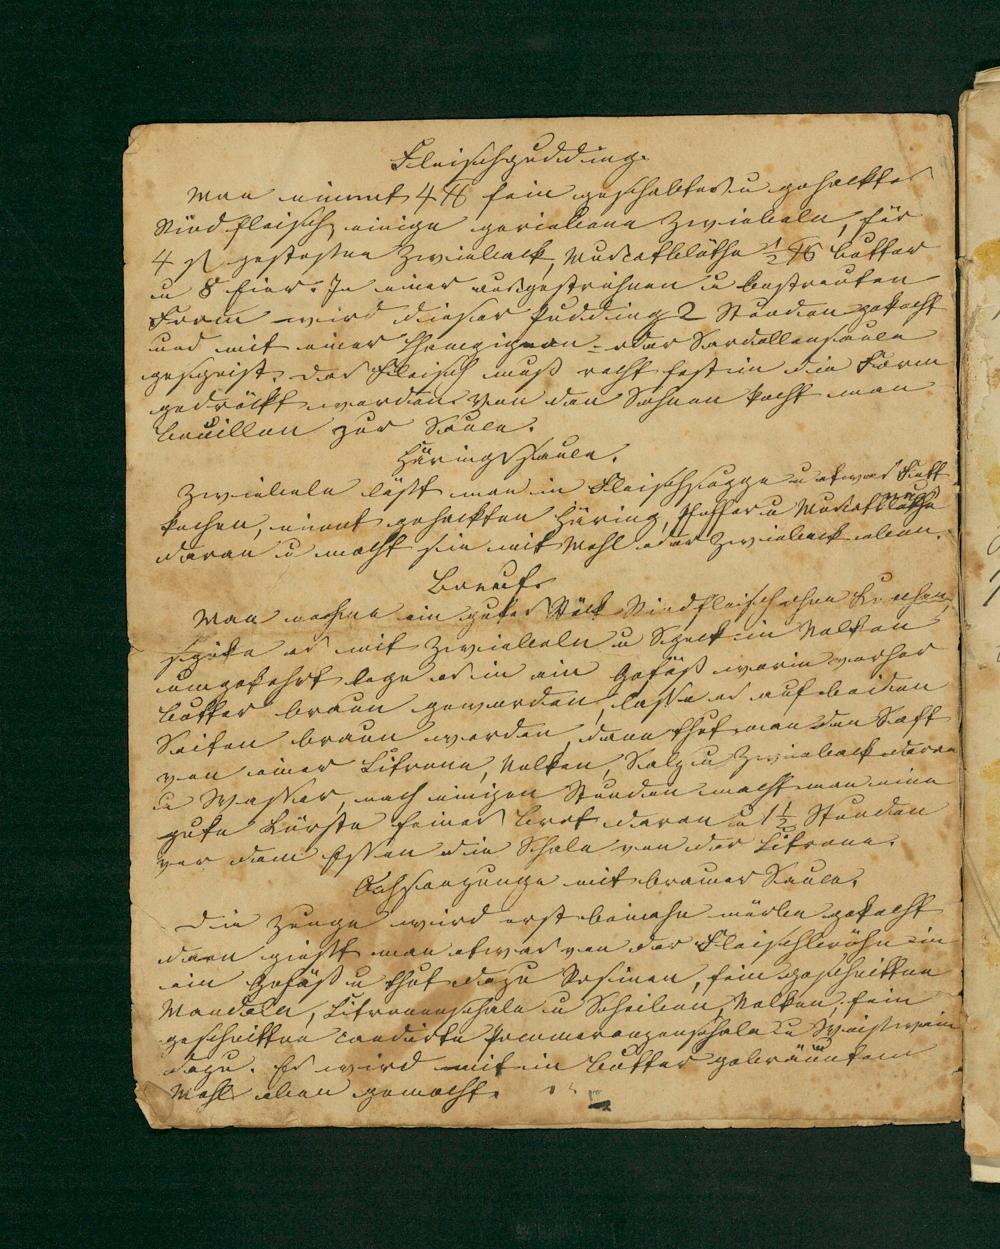 Fleischpudding.
Man nimmt 4 ℔ fein geschabtes u gehacktes
Rindfleisch, einige geriebene Zwiebeln, für
4 gestoßnen Zwieback, Muscatblüthe ½ ℔ Butter
u 8 Eier. In einer ausgestrichnen u bestreuten
Form wird dieser Pudding 2 Stunden gekocht
und mit einer Champignon- oder Sardellensauce
gespeist. Das Fleisch muß recht fest in die Form
gedrückt werden. Von den Sehnen kocht man
Bouillon zur Sauce.
Häringssauce.
Zwiebeln läßt man in Fleischsuppe u etwas Fett
kochen, nimmt gehackten Häring, Pfeffer u Muscatblüthe
daran u macht sie mit Mehl oder Zwieback eben.
Boeuf
Man nehme ein gutes Stück Rindfleisch ohne Knochen,
spicke es mit Zwiebeln u Speck in Nelken
umgekehrt lege es in ein Gefäß worin vorher
Butter braun geworden, lasse es auf beiden
Seiten braun werden, dann thut man den Saft
von einer Citrone, Nelken, Salz u Zwieback daran
u Wasser, nach einigen Stunden macht man eine
gute Kürste feines Brot daran u 1½ Stunden
vor dem Essen die Schale von der Citrone.
Ochsenzunge mit brauner Sauce.
Die Zunge wird erst beinahe mürbe gekocht
dann gießt man etwas von der Fleischbrühe in
ein Gefäß u thut dazu Rosinen, fein geschnittne
Mandeln, Citronenschale u Scheiben, Nelken, fein
geschnittne candirte Pommeranzenschale u Weißwein
dazu. Es wird mit in Butter gebräuntem
Mehl eben gemacht.